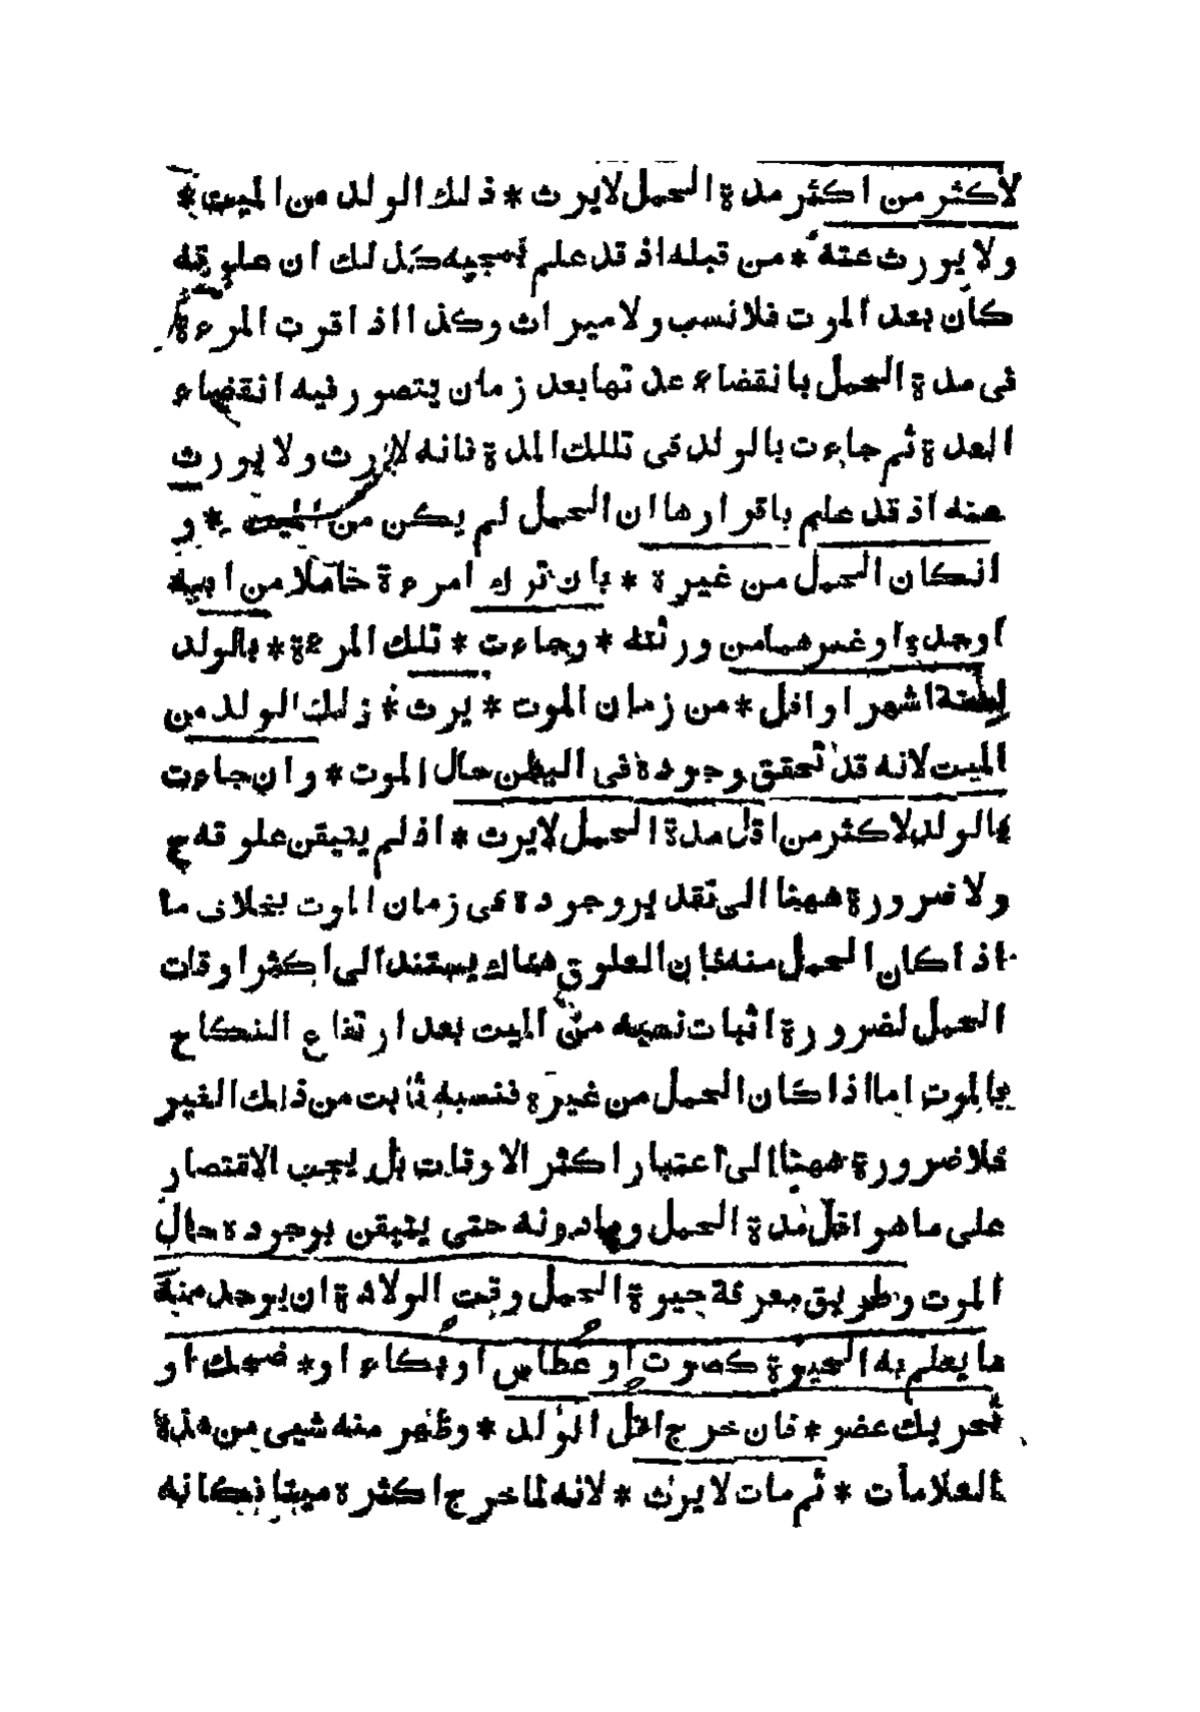 لاكثر من اكثر مدة الحمل لايرث * ذلك الولد من الميت *
ولا يورث عنه * من قبله اذ قد علم بمجيه كذلك ان علوقه
كان بعد الموت فلا نسب ولا ميراث وكذا اذا اقرت المرءة
فى مدة الحمل بانقضاء عدتها بعد زمان يتصور فيه انقضاء
العدة ثم جاءت بالولد فى تلك المدة فانه لايرث ولا يورث
عنه اذ قد علم باقرارها ان الحمل لم يكن من الميت * و
انكان الحمل من غيره * بان ترك امرءة حاملا من ابيه
اوجده اوغيرهما من ورثته * وجاءت * تلك المرءة * بالولد
لستة اشهر او اقل * من زمان الموت * يرث * ذلك الولد من
الميت لانه قد تحقق وجوده فى البطن حال الموت * وان جاءت
بالولد لاكثر من اقل مدة الحمل لايرث * اذ لم يتيقن علوقه ح
ولا ضرورة ههنا الى تقدير وجوده فى زمان الموت بخلاف ما
اذا كان الحمل منه فان العلوق هناك يستند الى اكثر اوقات
الحمل لضرورة اثبات نسبه من الميت بعد ارتفاع النكاح
بالموت اما اذا كان الحمل من غيره فنسبه ثابت من ذلك الغير
فلا ضرورة ههنا الى اعتبار اكثر الاوقات بل يجب الاقتصار
على ما هو اقل مدة الحمل وما دونه حتى يتيقن بوجوده حال
الموت وطريق معرفة حيوة الحمل وقت الولادة ان يوجد منه
ما يعلم به الحيوة كصوت او عطاس او بكاء او * ضحك او
تحريك عضو * فان خرج اقل الولد * وظهر منه شيى من هذه
العلامات * ثم مات لايرث * لانه لما خرج اكثره ميتا فكانه